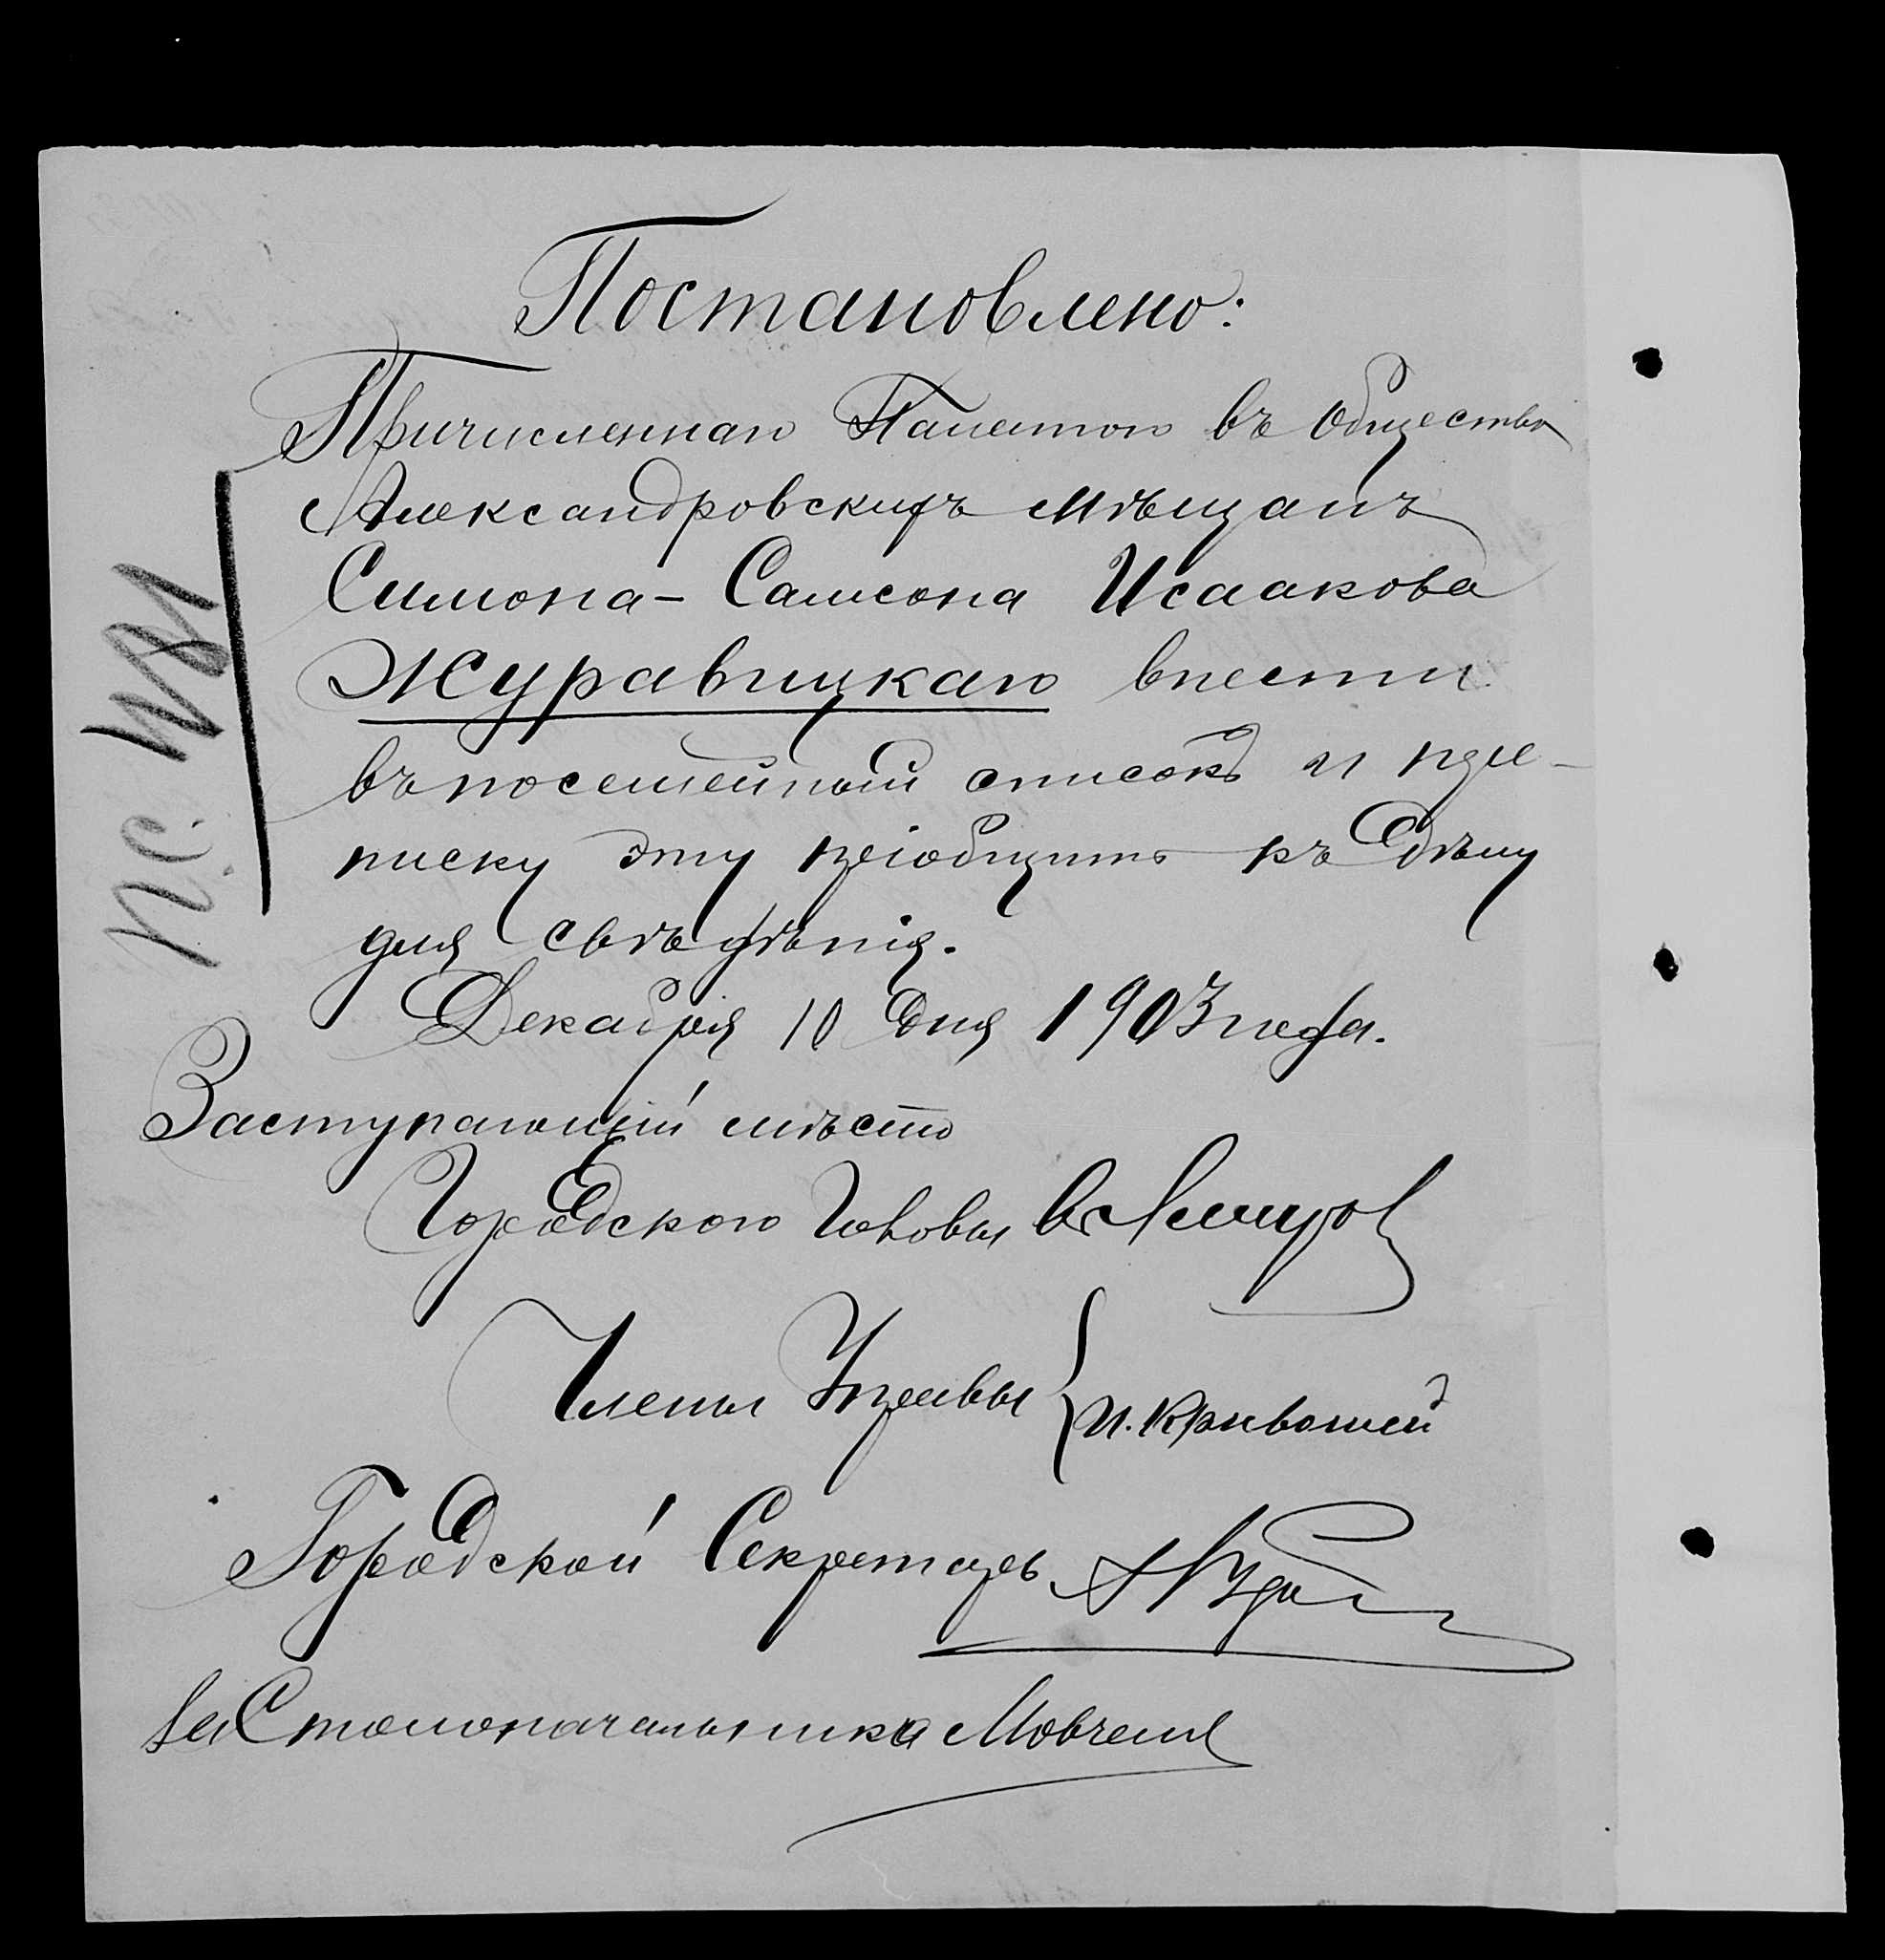 Постановлено:
Причисленнаго Палатою въ общество
Александровскихъ мѣщанъ
Симона-Самсона Исаакова
Журавицкаго внести
въ посемейный списокъ и пере-
писку эту пріобщить къ дѣлу
для свѣдѣнія.
Декабря 10 дня 1903 года.
Заступающій мѣсто
Городского Головы
Члены Управы { И. Кривошей
Городской Секретарь
За Столоначальника Мовчан
п.с.